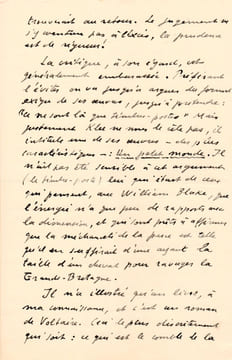 trouvait au retour. Le jugement ne
s'y aventure pas à l'excès, la prudence
est de rigueur.
La critique, à son égard, est
généralement embarrassée. Préférant
l'éviter on va jusqu'à arguer du format
exigu de ses œuvres, jusqu'à prétendre :
"Ce ne sont là que timbres-poste." Mais
justement Klee ne nous le cèle pas, il
intitule une de ses œuvres - des plus
caractéristiques - : Un petit monde. Il
n'ait pas été sensible à cet argument
(le timbre-poste) lui qui était de ceux
qui pensent, avec William Blake, que
l'énergie n'a que peu de rapports avec
la dimension, et qui sont prêts à affirmer
que la méchanceté de la puce est telle
qu'il en suffirait d'une ayant la
taille d'un cheval pour ravager la
Grande-Bretagne.
Il n'a illustré qu'un livre, à
ma connaissance, et c'est un roman
de Voltaire. (Ce le plus discrètement
qui soit : ce qui est le comble de la